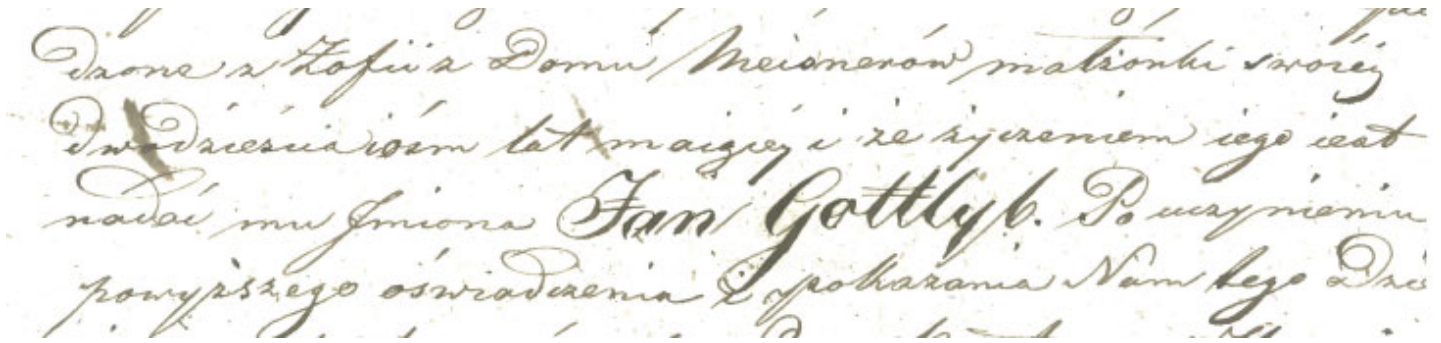 dzone z Zofii z Domu Meisnerów małżonki swoiéy
dwadzieścia iośm lat maiącéy i że życzeniem iego iest
nadać mu Jmiona Jan Gottlyb. Po uczynieniu
powyższego oświadczenia i pokazania Nam tego Dzie